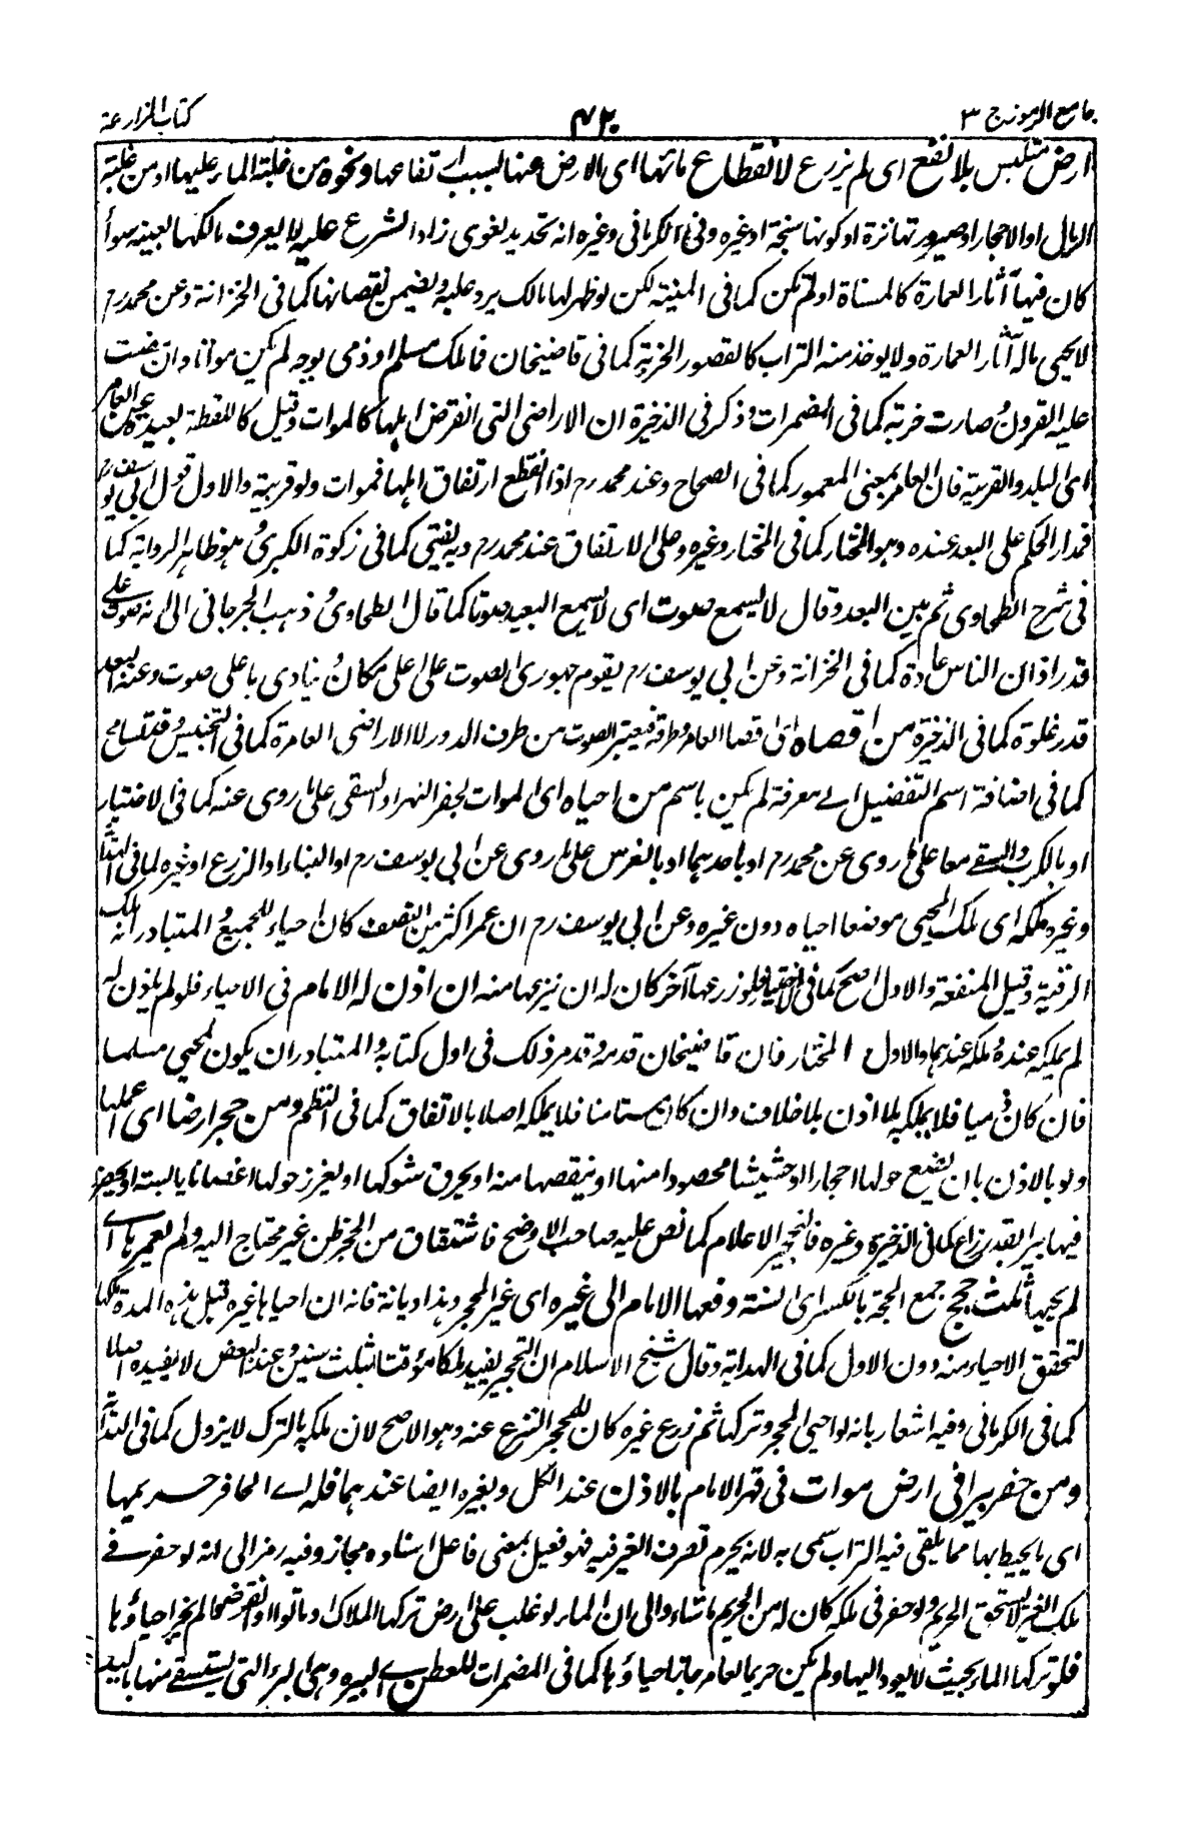 جامع الرموز ج ٣
٤٢٠
كتاب المزارعة
ارض متلبس بلا نفع اى لم يزرع لانقطاع مائها اى الارض عنها لسبب ارتفاعها ونحوه من غلبة الماء عليها او من غلبة
الرمال او الاحجار او صيرورتها نزة او كونها سبخة او غيره وفى الكرمانى وغيره انه تحديد لغوى زاد الشرع عليه لا يعرف مالكها بعينه سواء
كان فيها آثار العمارة كالمسناة او لم تكن كما فى المنية لكن لو ظهر لها مالك يرد عليه ويضمن نقصانها كما فى الخزانة وعن محمد رح
لا يحيى ماله آثار العمارة ولا يوخذ منه التراب كالقصور الخربة كما فى قاضيخان فما ملك مسلم او ذمى بوجه لم يكن مواتا وان مضت
عليه القرون وصارت خربة كما فى المضمرات وذكر فى الذخيرة ان الاراضى التى انقرض اهلها كالموات وقيل كاللقطة بعيد من العامر
اى البلد والقرية فان العامر بمعنى المعمور كما فى الصحاح وعند محمد رح اذا انقطع ارتفاق اهلها فموات ولو قريبة والاول قول ابى يوسف رح
فمدار الحكم على البعد عنده وهو المختار كما فى المختار وغيره وعلى الارتفاق عند محمد رح وبه يفتى كما فى زكوة الكبرى وهو ظاهر الرواية كما
فى شرح الطحاوى ثم بين البعد وقال لا يسمع صوت اى لا يسمع البعيد صوتا كما قال الطحاوى وذهب الجرجانى الى انه صوت على
قدر اذان الناس عادة كما فى الخزانة وعن ابى يوسف رح يقوم جهورى الصوت على اعلى مكان وينادى باعلى صوت وعنه البعد
قدر غلوة كما فى الذخيرة من اقصاه اى اقصا العامر وطرفه فيعتبر الصوت من طرف الدور لا الاراضى العامرة كما فى التجنيس وفيه تسامح
كما فى اضافة اسم التفضيل الى معرفة لم يكن باسم من احياه اى الموات بحفر النهر او السقى على ما روى عنه كما فى الاختيار
او بالكرب والسقى معا على ما روى عن محمد رح او باحدهما او بالغرس على ما روى عن ابى يوسف رح او البناء او الزرع او غيره كما فى
وغيره ملكه اى ملك المحيى موضعا احياه دون غيره وعن ابى يوسف رح ان عمر اكثر من النصف كان احياء للجميع والمتبادر انه ملك
الرقبة وقيل المنفعة والاول اصح كما فى فلو زرعها آخر كان له ان ينزعها منه ان اذن له الامام فى الاحياء فلو لم ياذن له
لم يملكه عنده وملكه عندهما والاول المختار فان قاضيخان قدمه وقد مر ذلك فى اول كتابه والمتبادر ان يكون المحيى مسلما
فان كان ذميا فلا يملكه بلا اذن بلا خلاف وان كان مستامنا فلا يملكه اصلا بالاتفاق كما فى النظم ومن حجر ارضا اى اعلمها
ولو بالاذن بان يضع حولها احجارا او حشيشا محصودا منها او ينقصها منه او يحرق شوكها او يغرز حولها اغصانا يابسة او يحفر
فيها بيرا بقدر ذراع كما فى الذخيرة وغيره فالتحجير الاعلام كما نص عليه صاحب الاوضح فاشتقاق من الحجر ظن غير محتاج اليه ولم يعمرها اى
لم يحيها ثلث حجج جمع الحجة بالكسر اى السنة دفعها الامام الى غيره اى غير المحجر وهذا ديانة فانه ان احياها غيره قبل هذه المدة ملكها
لتحقق الاحياء منه دون الاول كما فى الهداية وقال شيخ الاسلام ان التحجير يفيد ملكا موقتا بثلث سنين وعند البعض لا يفيده اصلا
كما فى الكرمانى وفيه اشعار بانه لو احيى المحجر وتركها ثم زرع غيره كان للمحجر النزع عنه وهو الاصح لان ملكه بالترك لا يزول كما فى
ومن حفر بيرا فى ارض موات فى قهر الامام بالاذن عند الكل وبغيره ايضا عندهما فله اى الحافر حريمها
اى ما يحيط بها مما يلقى فيه التراب سمى به لانه يحرم تصرف الغير فيه فهو فعيل بمعنى فاعل اسناده مجاز وفيه رمز الى انه لو حفر فى
ملك الغير لا يستحق الحريم ولو حفر فى ملكه كان له من الحريم ما شاء والى ان الماء لو غلب على ارض تركها الملاك او ماتوا او انقرضوا لم يجز احياؤها
فلو تركها الماء بحيث لا يعود اليها ولم يكن حريما لعامر جاز احياؤها كما فى المضمرات للعطن اى لبيره وهى البر التى يستسقى منها باليد